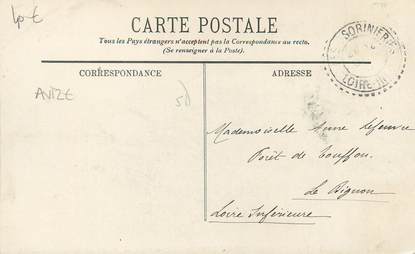 40 €
CARTE POSTALE
Tous les Pays étrangers n'acceptent pas la Correspondance au recto.
(Se renseigner à la Poste).
CORRESPONDANCE
ADRESSE
SORINIÈRES
LOIRE-INF
AVIZE
Mademoiselle Anne Lefeuvre
Forêt de Touffou.
Le Bignon
Loire Inférieure